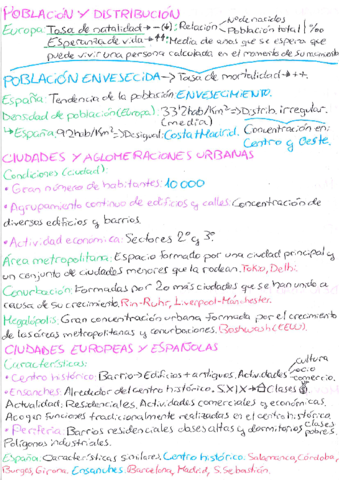 POBLACIÓN Y DISTRIBUCIÓN
Europa: Tasa de natalidad → -(↓): Relación Nº de nacidos
Población total | ‰
Esperanza de vida → ↑↑: Media de años que se espera que
puede vivir una persona calculada en el momento de su nacimiento
POBLACIÓN ENVEJECIDA → Tasa de mortalidad → ++.
España: Tendencia de la población ENVEJECIMIENTO.
Densidad de población (Europa): 33'2hab/Km² => Distrib. irregular.
(media)
↳ España: 92hab/Km² => Desigual: Costa+Madrid. Concentración en:
Centro y Oeste.
CIUDADES Y AGLOMERACIONES URBANAS
Condiciones (ciudad):
• Gran número de habitantes: 10 000
• Agrupamiento continuo de edificios y calles: Concentración de
diversos edificios y barrios.
• Actividad económica: Sectores 2º y 3º.
Área metropolitana: Espacio formado por una ciudad principal y
un conjunto de ciudades menores que la rodean. Tokio, Delhi.
Conurbación: Formadas por 2 o más ciudades que se han unido a
causa de su crecimiento. Rin-Ruhr, Liverpool-Mánchester.
Megalópolis: Gran concentración urbana formada por el crecimiento
de las áreas metropolitanas y conurbaciones. Boshwash (EEUU).
CIUDADES EUROPEAS Y ESPAÑOLAS
Características:
• Centro histórico: Barrio → Edificios + antiguos. Actividades cultura
ocio
comercio.
• Ensanches: Alrededor del centro histórico. S.XIX → Clases
Actualidad: Residenciales, Actividades comerciales y económicas.
Acogen funciones tradicionalmente realizadas en el centro histórico.
• Periferia: Barrios residenciales clases altas y dormitorios clases
pobres.
Polígonos industriales.
España: Características similares. Centro histórico: Salamanca, Córdoba,
Burgos, Girona. Ensanches: Barcelona, Madrid, S. Sebastián.